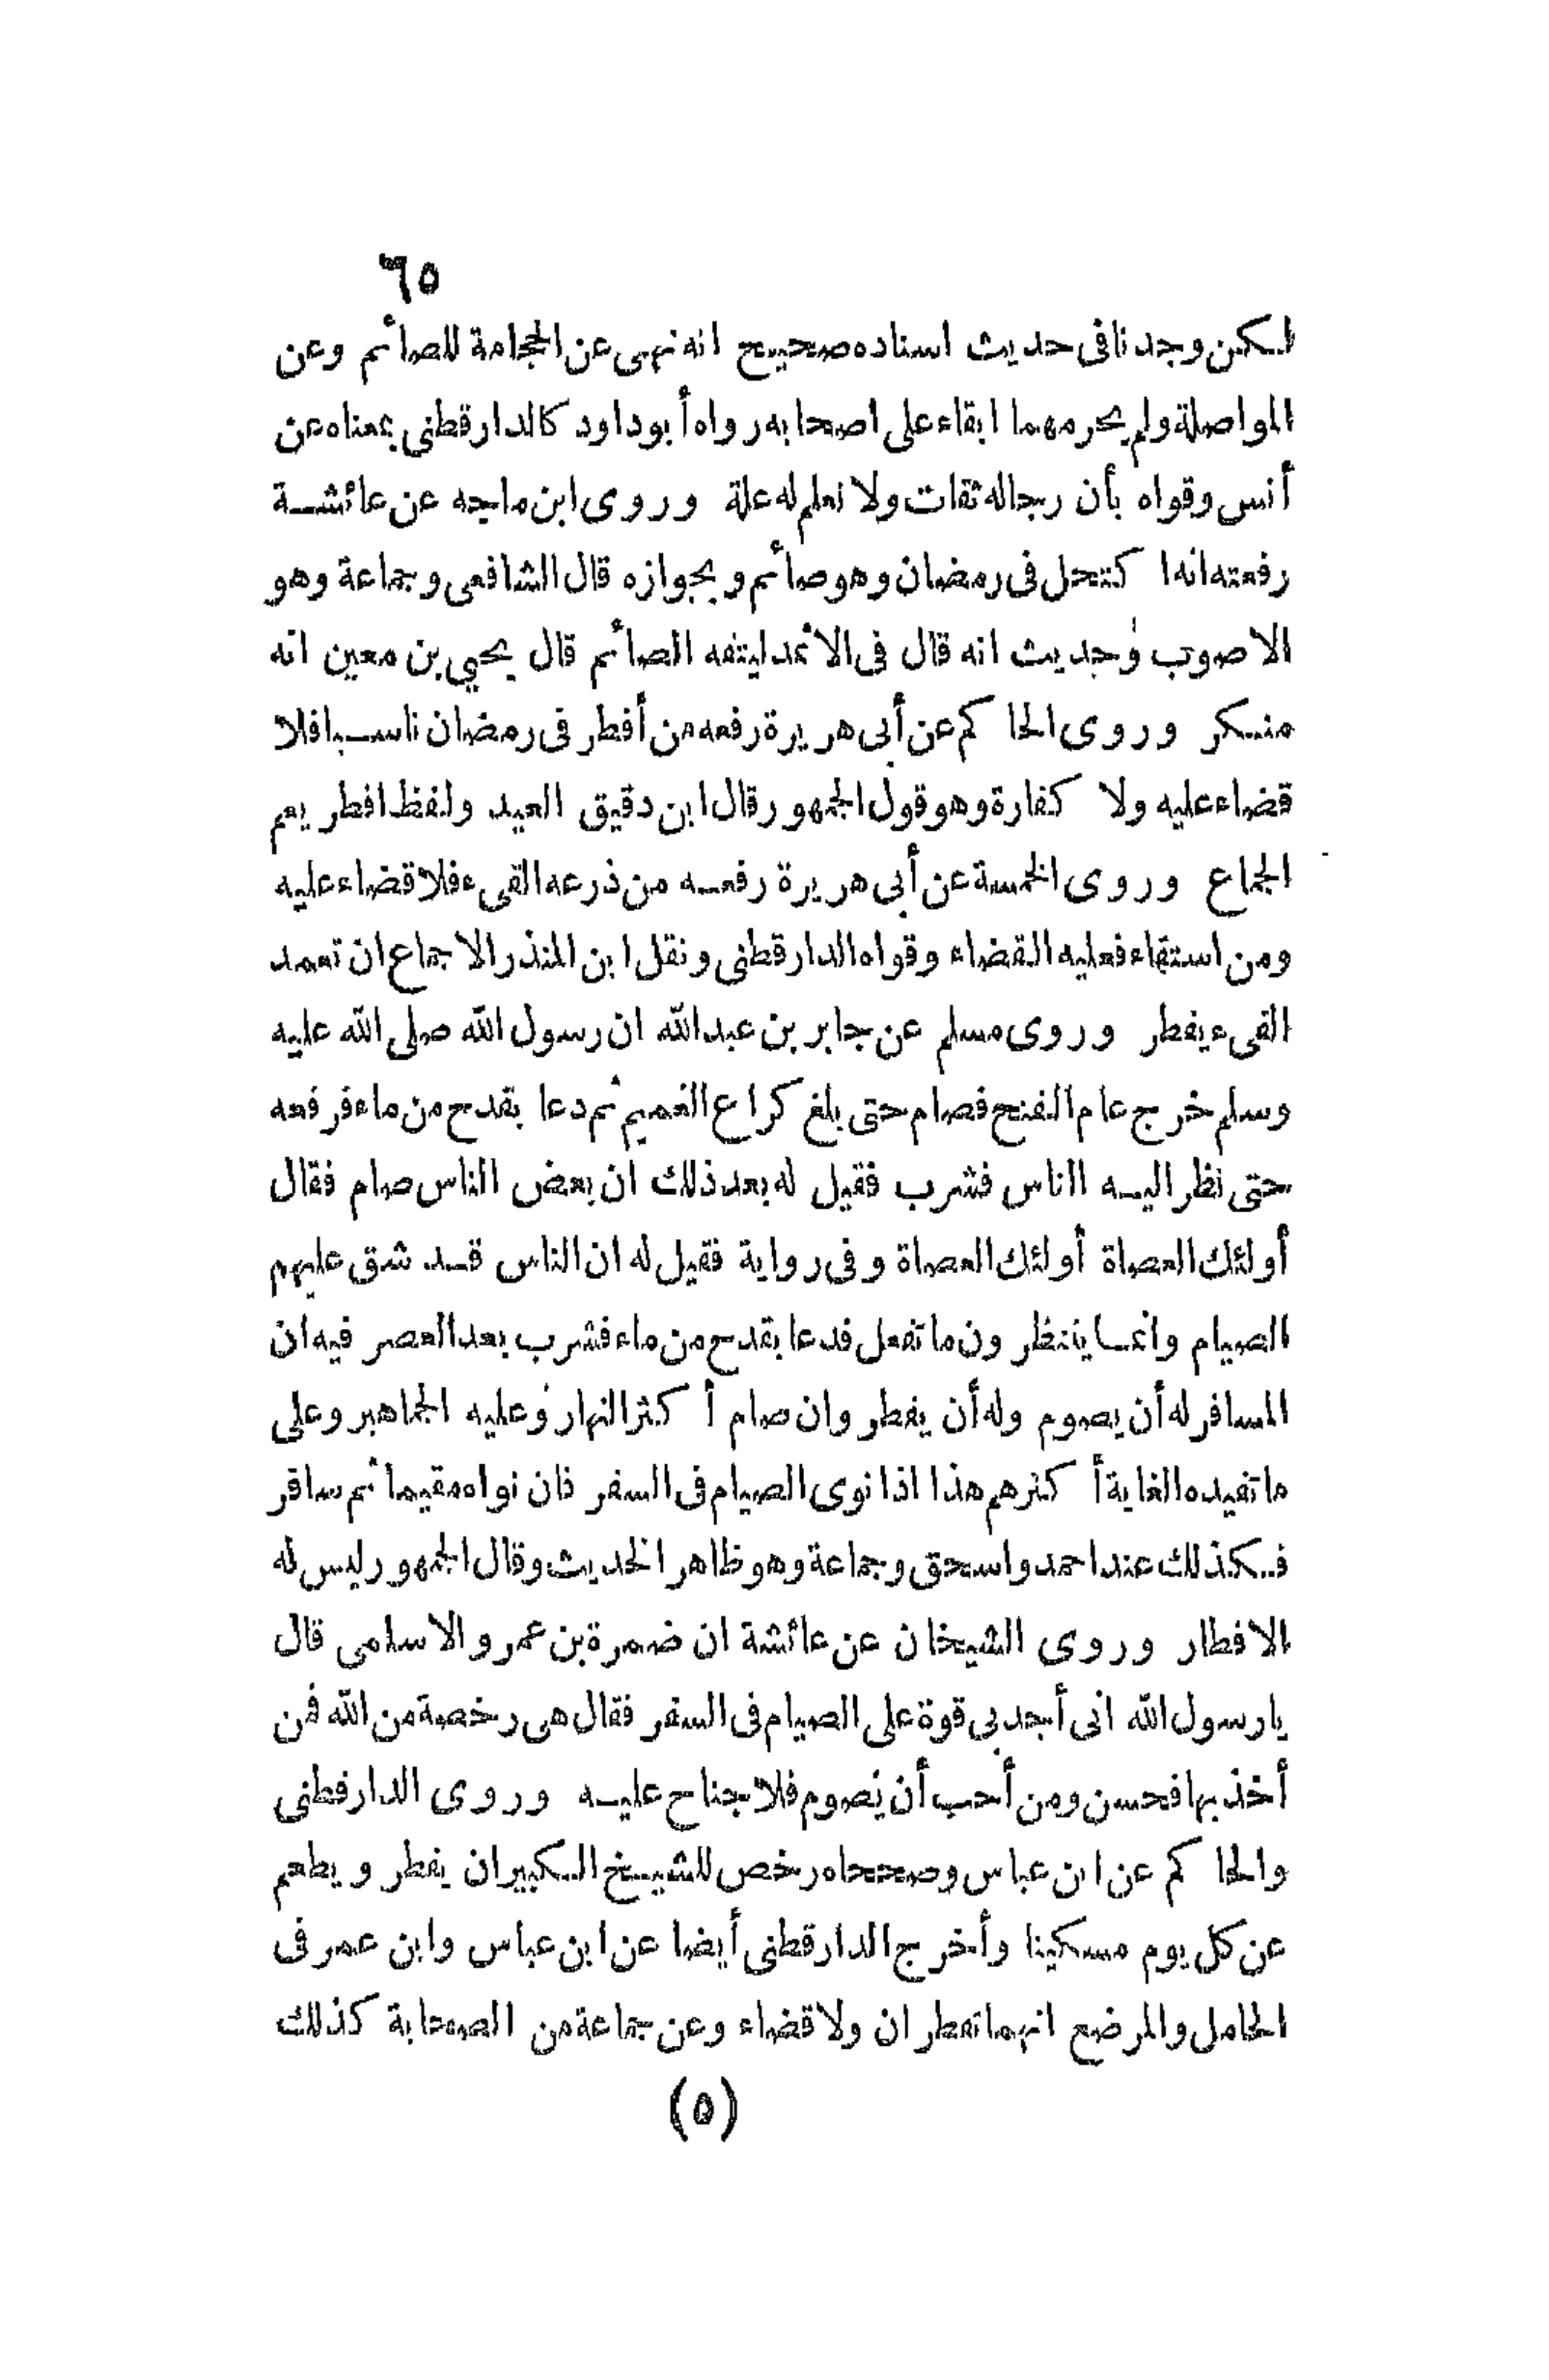 ٦٥
لكن وجدنا فى حديث اسناده صحيح انه نهى عن الحجامة للصائم وعن
المواصلة ولم يحرمهما ابقاء على اصحابه رواه أبوداود كالدارقطنى بمعناه عن
أنس وقواه بأن رجاله ثقات ولا نعلم له علة وروى ابن ماجه عن عائشة
رفعته انه اكتحل فى رمضان وهو صائم وبجوازه قال الشافعى وجماعة وهو
الاصوب وحديث انه قال فى الاثمد ليتقه الصائم قال يحيى بن معين انه
منكر وروى الحاكم عن أبى هريرة رفعه من أفطر فى رمضان ناسيا فلا
قضاء عليه ولا كفارة وهو قول الجمهور قال ابن دقيق العيد ولفظ افطر يعم
الجماع وروى الخمسة عن أبى هريرة رفعه من ذرعه القىء فلا قضاء عليه
ومن استقاء فعليه القضاء وقواه الدارقطنى ونقل ابن المنذر الاجماع ان تعمد
القىء يفطر وروى مسلم عن جابر بن عبدالله ان رسول الله صلى الله عليه
وسلم خرج عام الفتح فصام حتى بلغ كراع الغميم ثم دعا بقدح من ماء فرفعه
حتى نظر اليه الناس فشرب فقيل له بعد ذلك ان بعض الناس صام فقال
أولئك العصاة أولئك العصاة وفى رواية فقيل له ان الناس قد شق عليهم
الصيام وانما ينتظرون ما تفعل فدعا بقدح من ماء فشرب بعد العصر فيه ان
المسافر له أن يصوم وله أن يفطر وان صام أكثر النهار وعليه الجماهير وعلى
ما تفيده الغاية أكثرهم هذا اذا نوى الصيام فى السفر فان نواه مقيما ثم سافر
فكذلك عند احمد واسحق وجماعة وهو ظاهر الحديث وقال الجمهور ليس له
الافطار وروى الشيخان عن عائشة ان ضمرة بن عمرو الاسلمى قال
يا رسول الله انى أجد بى قوة على الصيام فى السفر فقال هى رخصة من الله فمن
أخذ بها فحسن ومن أحب أن يصوم فلا جناح عليه وروى الدارقطنى
والحاكم عن ابن عباس وصححاه رخص للشيخ الكبير ان يفطر ويطعم
عن كل يوم مسكينا وأخرج الدارقطنى أيضا عن ابن عباس وابن عمر فى
الحامل والمرضع انهما تفطران ولا قضاء وعن جماعة من الصحابة كذلك
(٥)